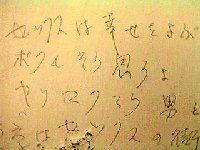 セックスは幸せをよぶ
ボクもそう思うよ
キリロクもそう 男も
はセックスの